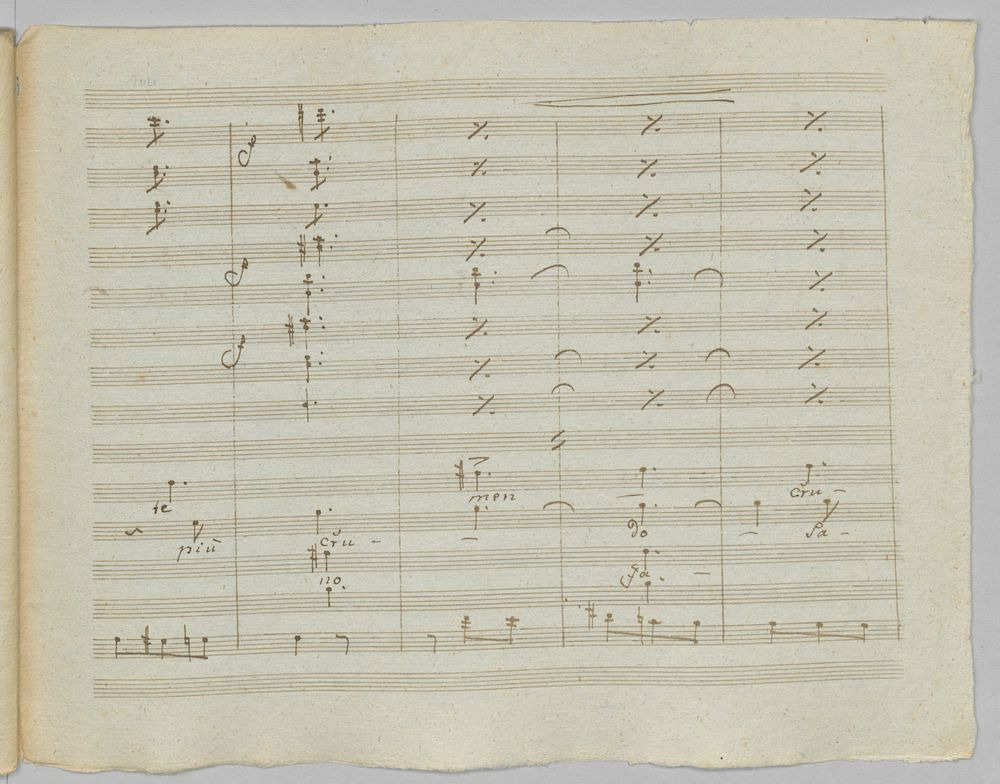 te men Cru -
più Cru - do Sa -
no Fa -